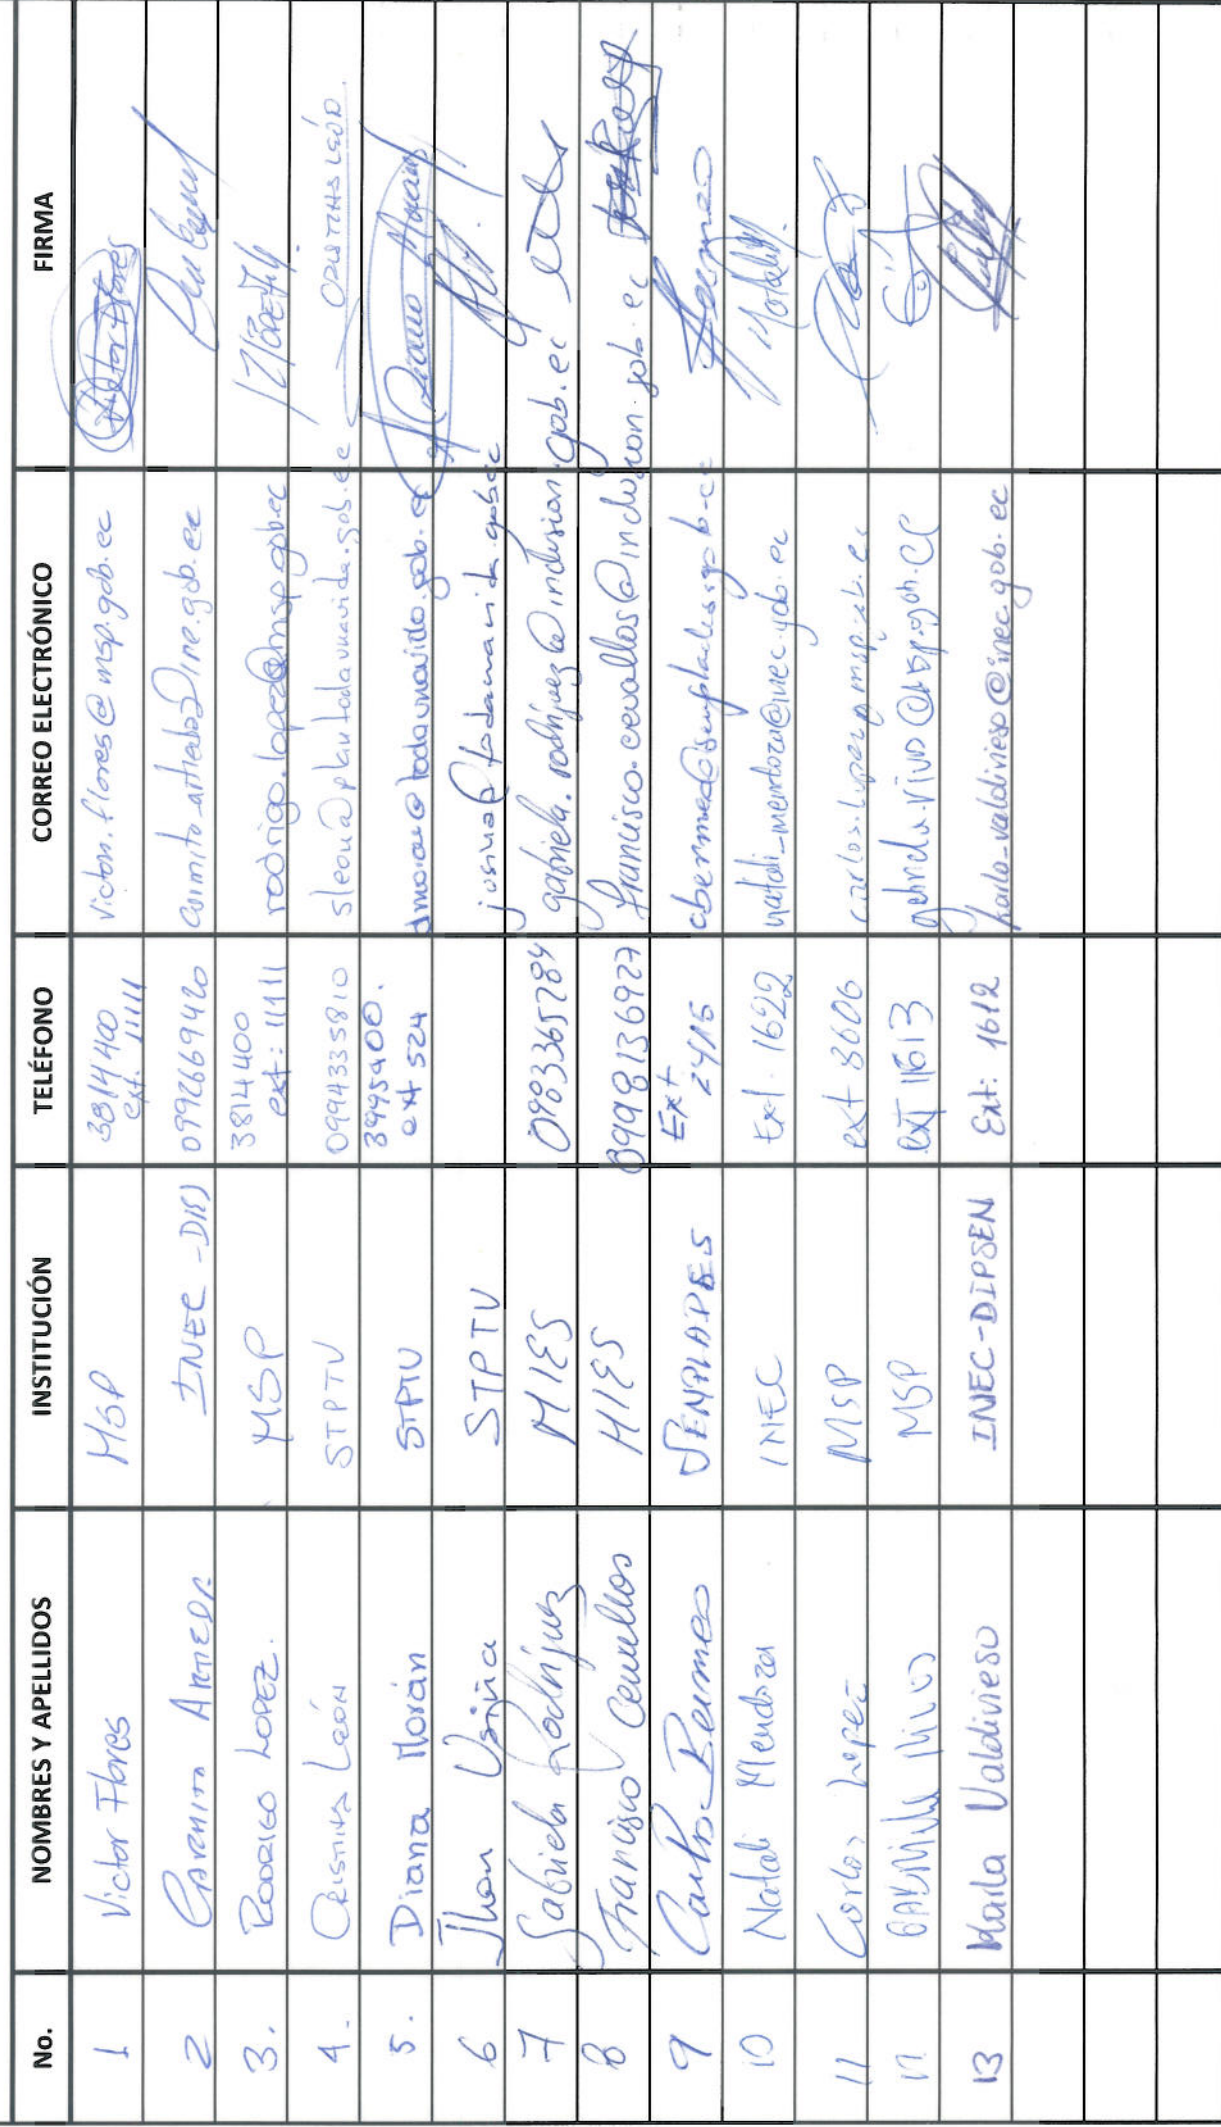 No. NOMBRES Y APELLIDOS INSTITUCIÓN TELÉFONO CORREO ELECTRÓNICO FIRMA
1 Victor Flores MSP 3814400 ext. 11111 victor.flores@msp.gob.ec Victor Flores
2 INEC - 0992669420
3. RODRIGO LOPEZ. MSP 3814400 ext: 11111 rodrigo.lopez@msp.gob.ec
4. CRISTINA LEÓN STPTV 0994335810 sleon@plantodaunavida.gob.ec CRISTINA LEÓN
5. Diana Morán STPTV 3995400. ext 524 dmoran@todaunavida.gob.ec
6 Jhon STPTV
7 Gabriela Rodríguez MIES 0983365784 gabriela.rodriguez@inclusion.gob.ec
8 Francisco Cevallos MIES 0998136927 francisco.cevallos@inclusion.gob.ec
9 Carlos Bermeo SENPLADES Ext 2415 Bermeo
10 Natali Mendoza INEC Ext. 1622 natali_mendoza@inec.gob.ec
11 Carlos Lopez MSP ext 8606
12 MSP ext 11613
13 Karla Valdivieso INEC-DIPSEN Ext: 1612 karla_valdivieso@inec.gob.ec